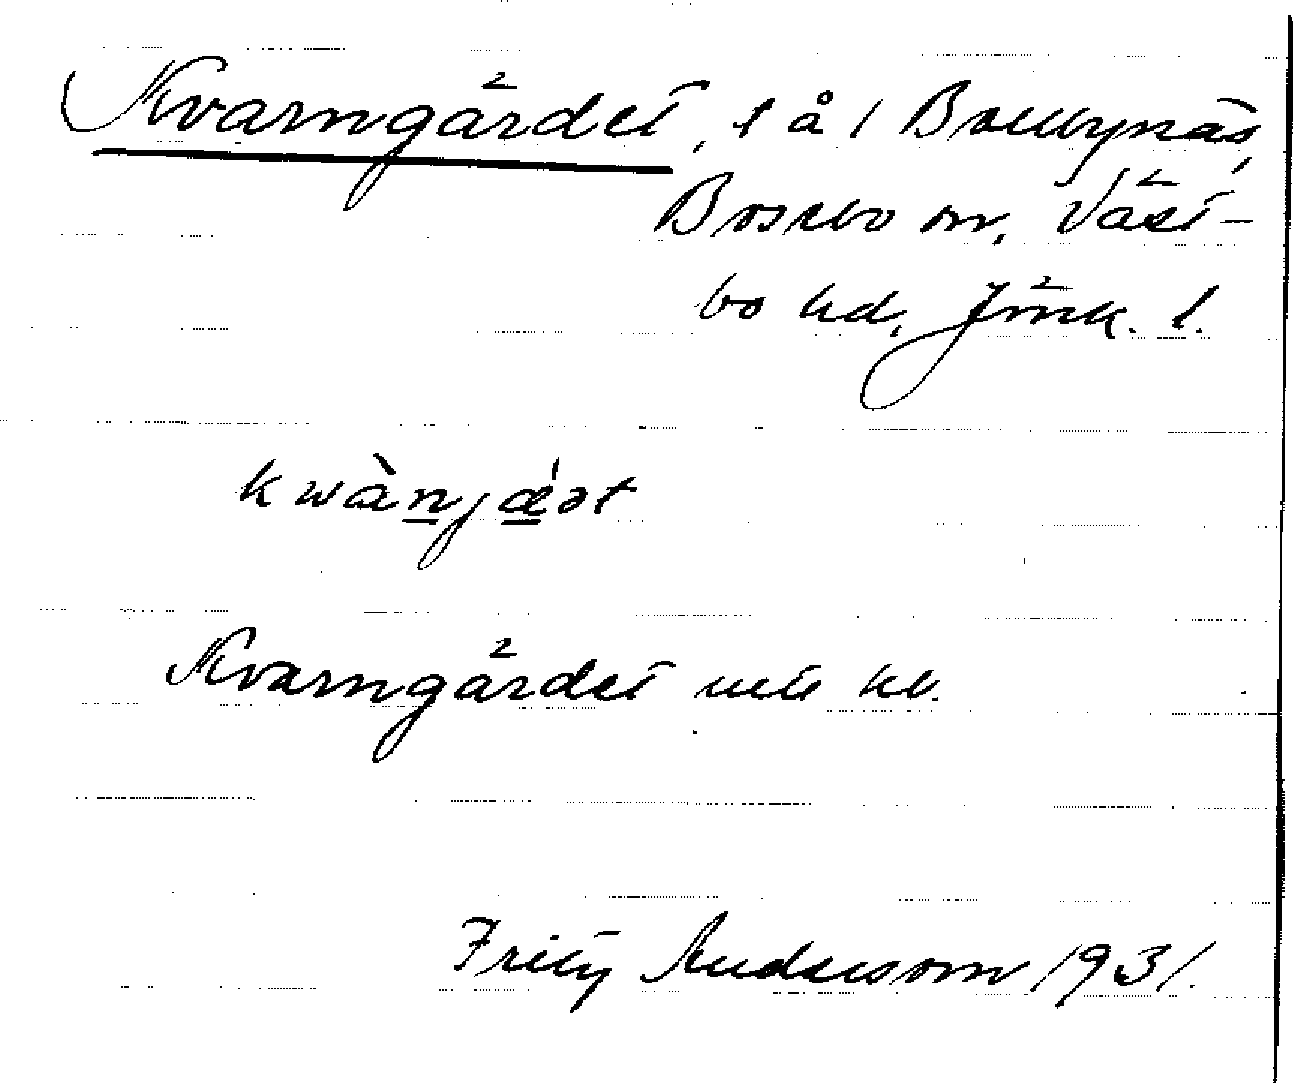 (Kvarngärdet, l å i Brunnynäs,
Bosebo sn, Väst-
bo hd, Jönk. l.
kwànjæ̀ət
Kvarngärdet utt. kv.
Frity Anderson 1931.